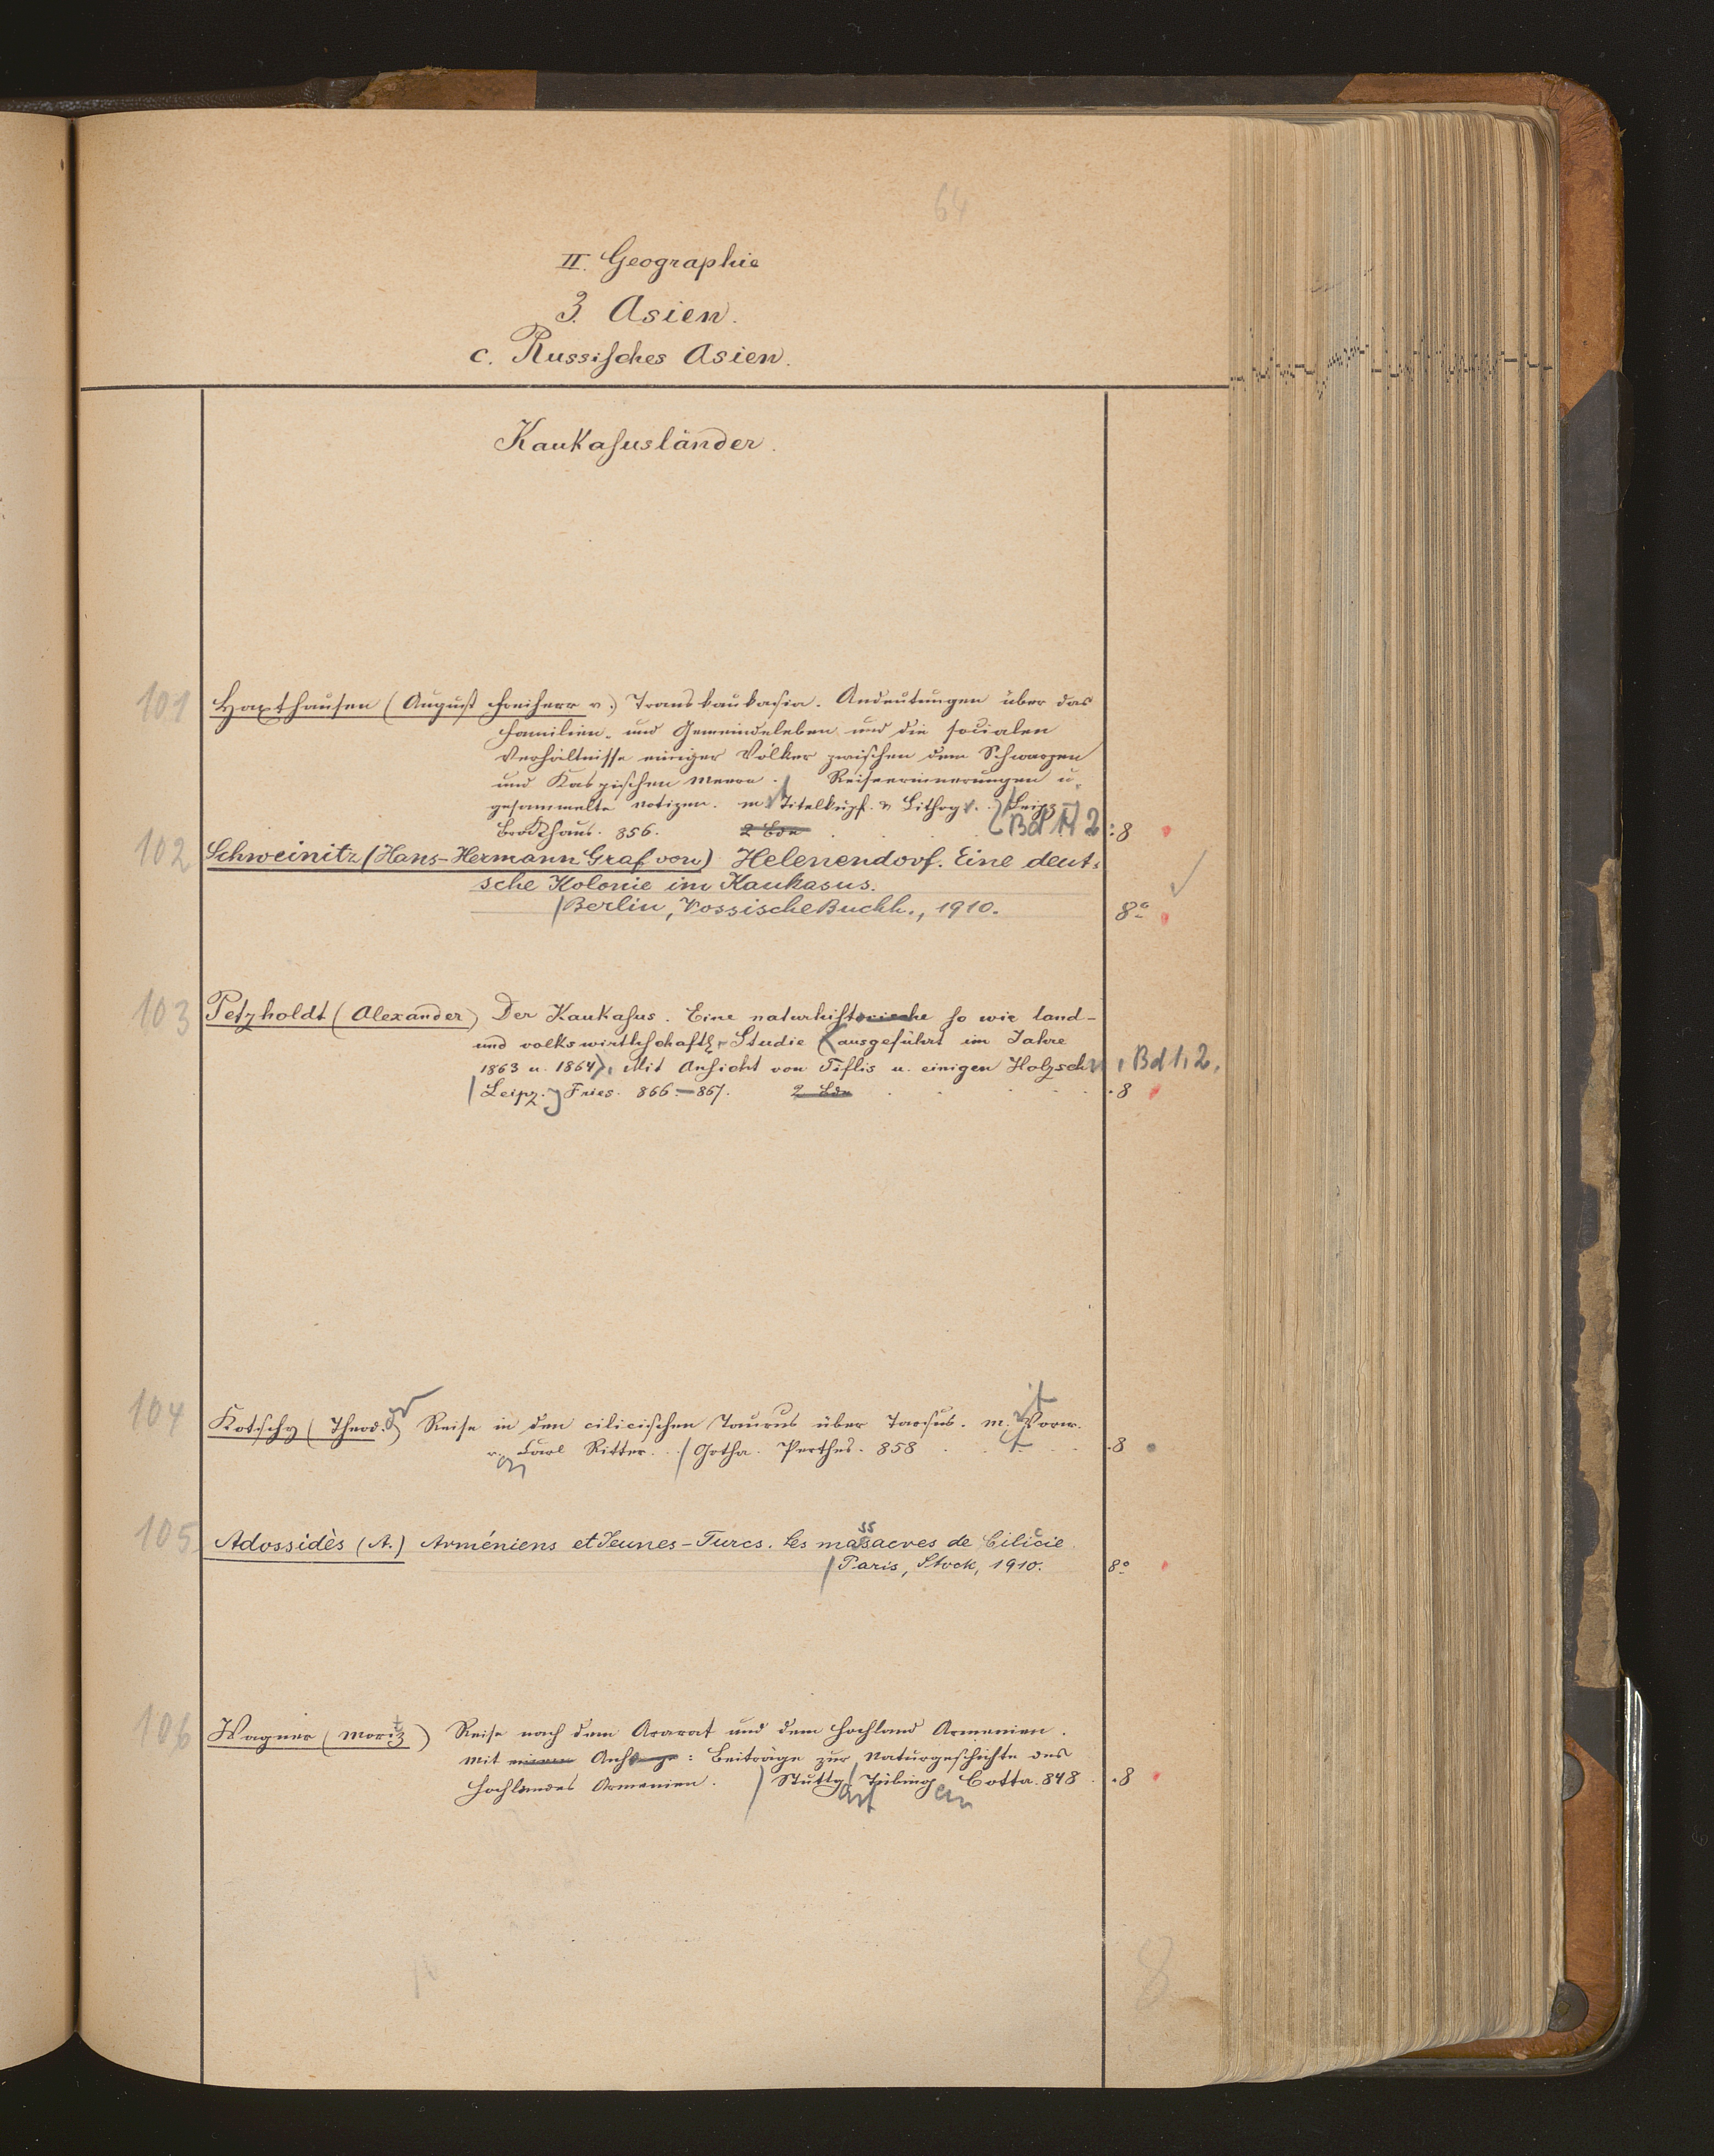 64
II. Geographie
3. Asien.
c. Russisches Asien.
Kaukasusländer.
101 Haxthausen (August Freiherr v.) Transkaukasia. Andeutungen über das
Familien- und Gemeindeleben und die socialen
Verhältnisse einiger Völker zwischen dem Schwarzen
und Kaspischen Meere. Reiseerinnerungen u.
gesammelte Notizen. m. Titelkupf. u. Lithogr. Leipz.
Brockhaus. 856. 2 Bde Bd 1/2 : 8
102 Schweinitz (Hans-Hermann Graf von) Helenendorf. Eine deut-
sche Kolonie im Kaukasus.
Berlin, Vossische Buchh., 1910. 8°
103 Petzholdt (Alexander) Der Kaukasus. Eine naturhistorische so wie land-
und volkswirthschaftl. Studie (ausgeführt im Jahre
1863 u. 1864). Mit Ansicht von Tiflis u. einigen Holzschn, Bd 1, 2.
Leipz. Fries. 866-867. 2 Bde . 8
104 Kotschy (Theodor) Reise in den cilicischen Taurus über Tarsus. mit Vorw.
von Carl Ritter. / Gotha. Perthes. 858 . 8
105 Adossidès (A.) Arméniens et Jeunes-Turcs. Les massacres de Cilicie
/ Paris, Stock, 1910. 8°
106 Wagner (Moritz) Reise nach dem Ararat und dem Hochland Armenien.
Mit einem Anhange: Beiträge zur Naturgeschichte des
Hochlandes Armenien. / Stuttgart / Tübingen Cotta. 848 . 8
8